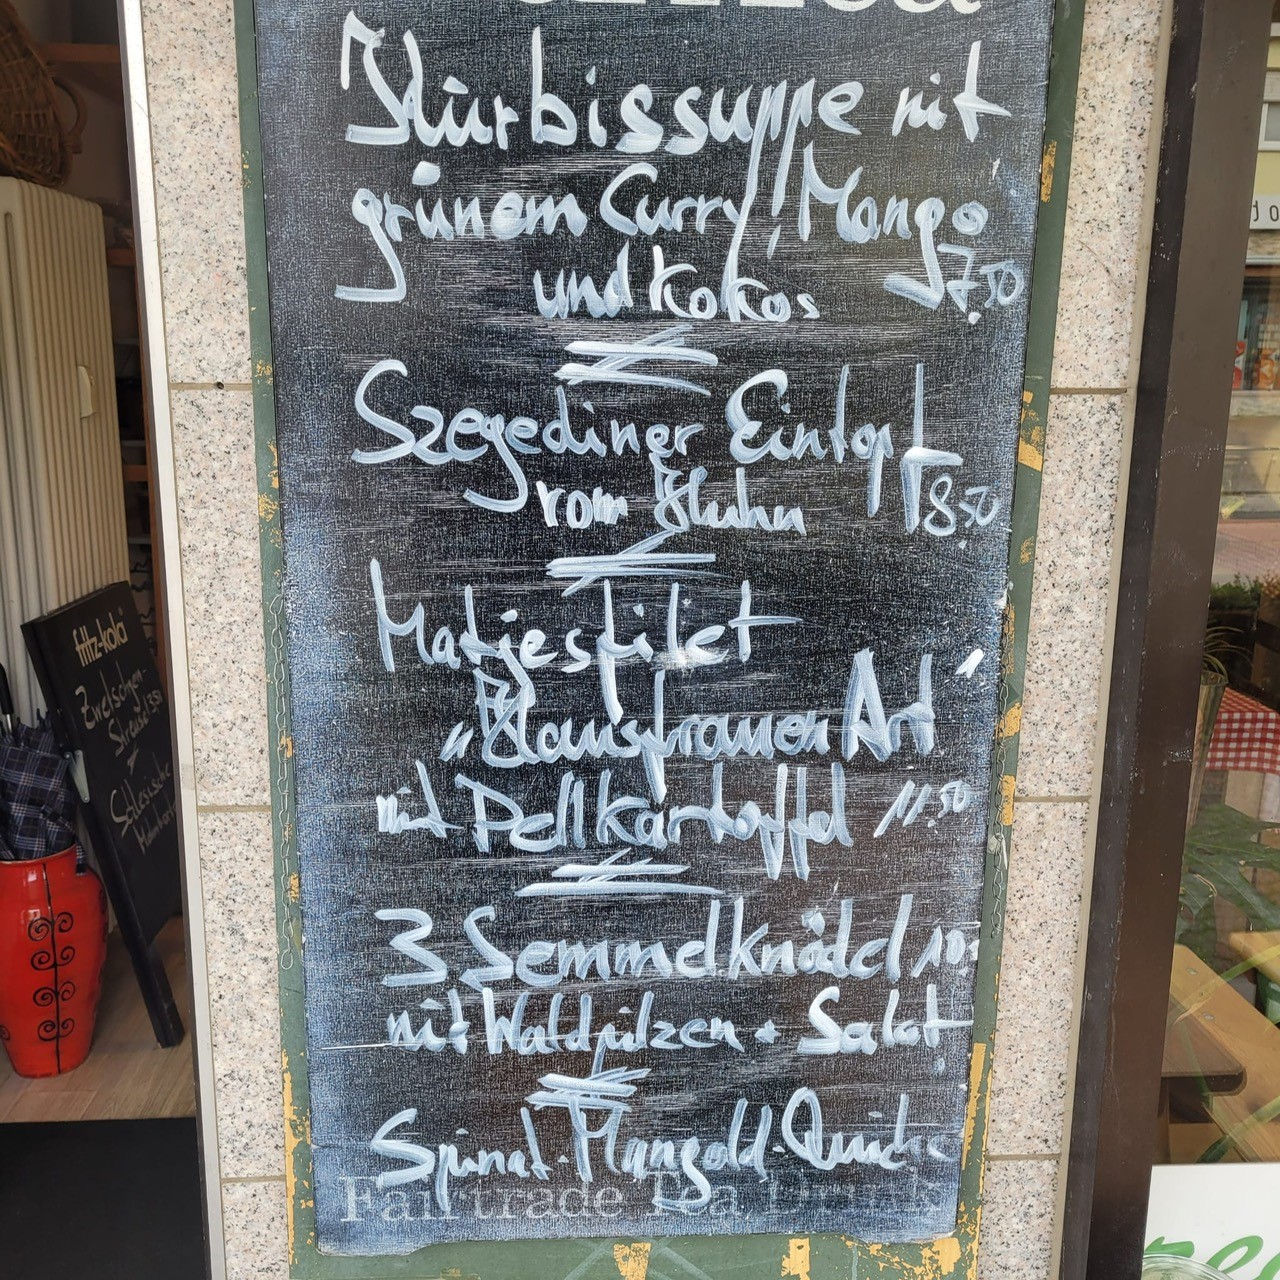 Kürbissuppe mit
grünem Curry, Mango
und Kokos 7.50
Szegediner Eintopf
vom Huhn 8.50
Matjesfilet
„Hausfrauen Art"
mit Pellkartoffel 11.50
3 Semmelknödel 10.
mit Waldpilzen + Salat
Spinat-Mangold-Quiche
Fairtrade Tea Drink
fritz-kola
Zwetschgen-
Streusel 3.50
Schlesische